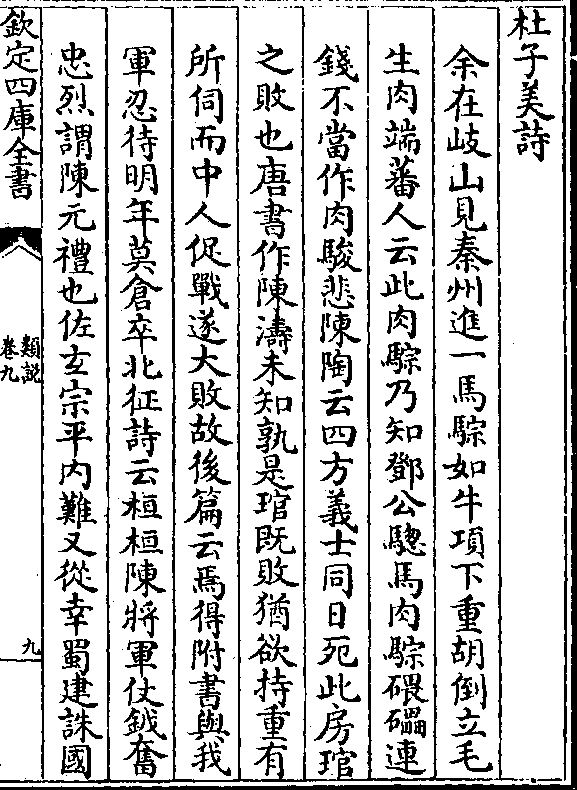 杜子美詩
余在岐山見秦州進一馬騌如牛項下重胡倒立毛
生肉端蕃人云此肉騌乃知鄧公驄馬肉騌碨礧連
錢不當作肉駿悲陳陶云四方義士同日死此房琯
之敗也唐書作陳濤未知孰是琯既敗猶欲持重有
所伺而中人促戰遂大敗故後篇云焉得附書與我
軍忍待明年莫倉卒北征詩云桓桓陳將軍仗鉞奮
忠烈謂陳元禮也佐玄宗平内難又從幸蜀建誅國
欽定四庫全書
類說
卷九
九